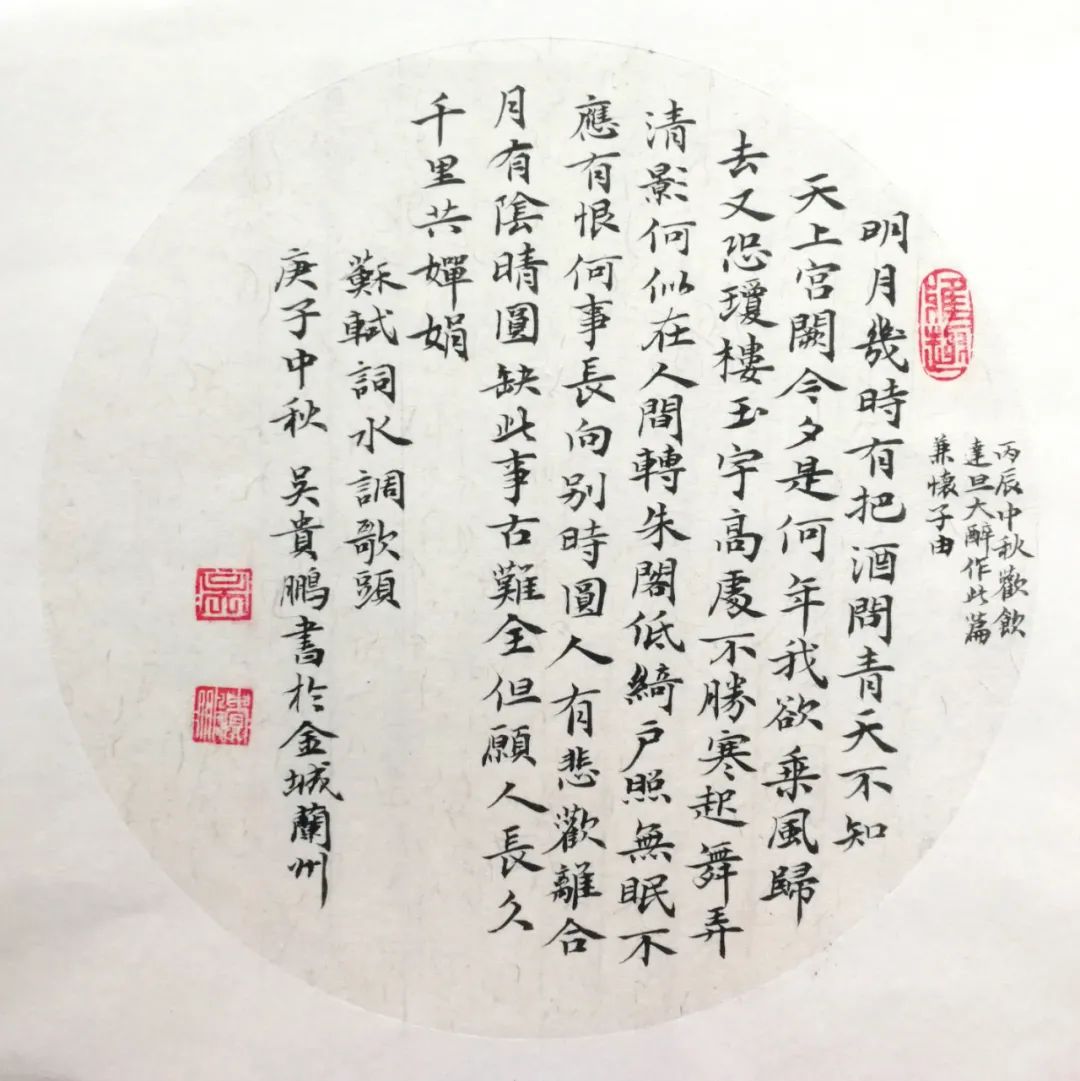 丙辰中秋歡飲
達旦大醉作此篇
兼懷子由
雅趣
明月幾時有把酒問青天不知
天上宮闕今夕是何年我欲乘風歸
去又恐瓊樓玉宇高處不勝寒起舞弄
清影何似在人間轉朱閣低綺戶照無眠不
應有恨何事長向别時圓人有悲歡離合
月有陰晴圓缺此事古難全但願人長久
千里共嬋娟
蘇軾詞水調歌頭
庚子中秋 吳貴鵬書於金城蘭州